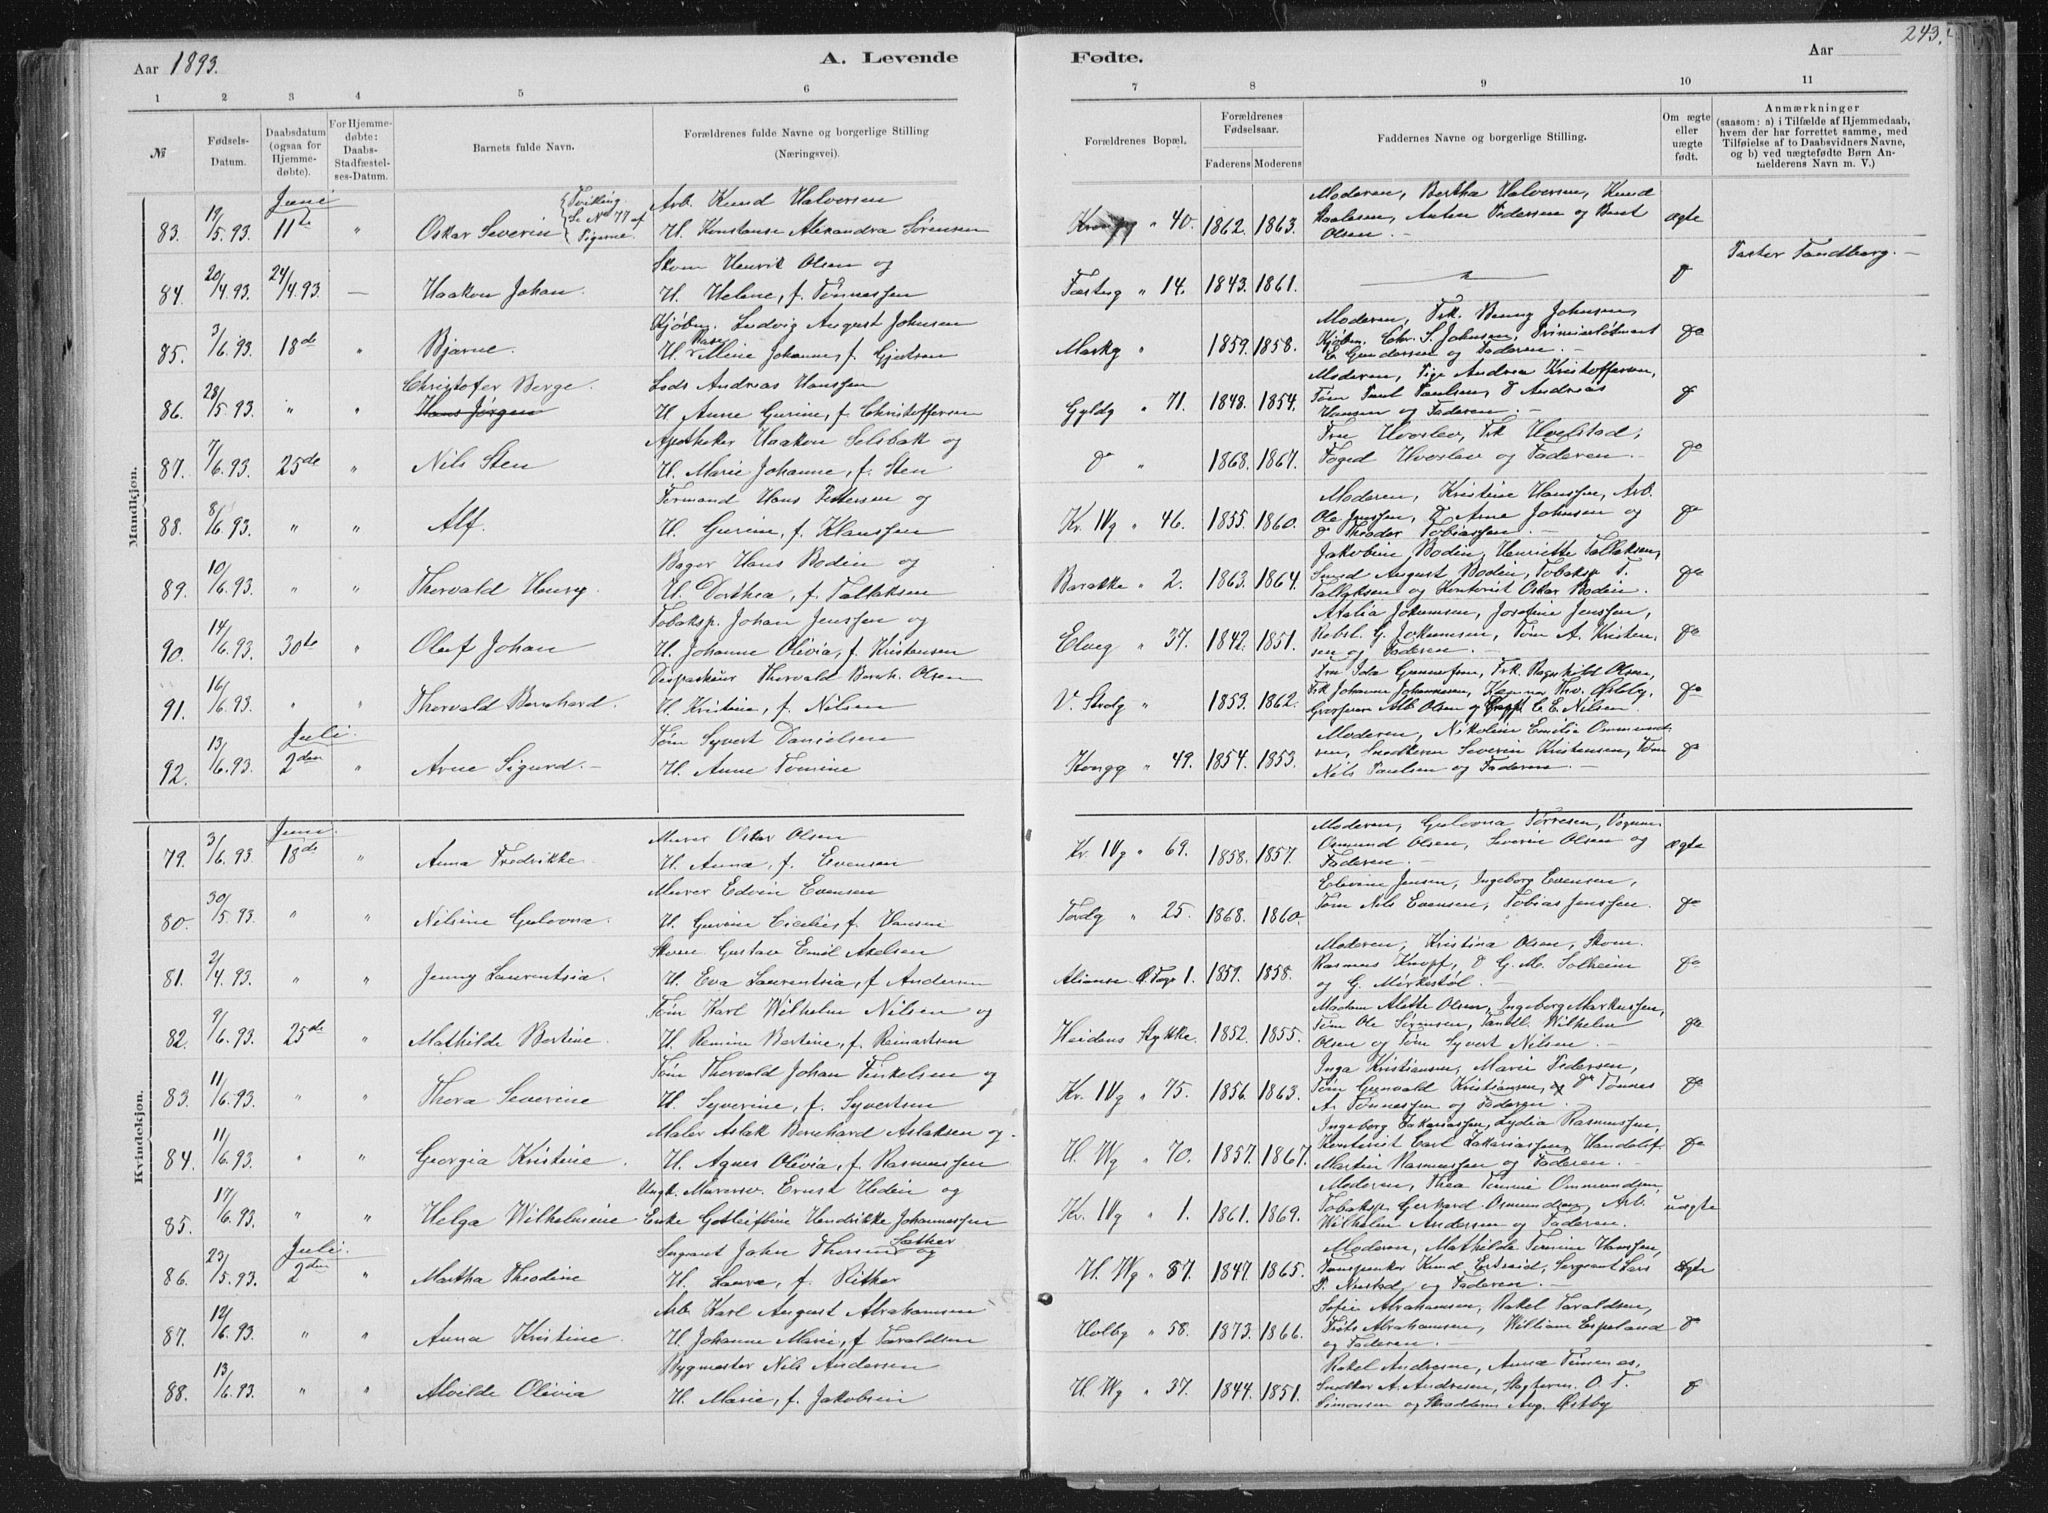 Aar 1893.
A. Levende
Fødte.
Aar
243.
1 2 3 4 5 6 7 8 9 10 11
№
Fødsels-Datum.
Daabsdatum (ogsaa for Hjemmedøbte).
For Hjemmedøbte: Daabs-Stadfæstelses-Datum.
Barnets fulde Navn.
Forældrenes fulde Navne og borgerlige Stilling (Næringsvei).
Forældrenes Bopæl.
Forældrenes Fødselsaar.
Faderens Moderens
Faddernes Navne og borgerlige Stilling.
Om ægte eller uægte født.
Anmærkninger
(saasom: a) i Tilfælde af Hjemmedaab, hvem der har forrettet samme, med Tilføielse af to Daabsvidners Navne, og b) ved uægtefødte Børn Anmelderens Navn m. V.)
Mandkjøn.
Juni
83. 19/5.93. 11te " Oskar Severin {Tvilling Se No 77 af Pigerne. Arb. Knud Halvorsen H. Konstanse Alexandra Sørensen " 40. 1862. 1863. Moderen, Bertha Halvorsen, Knud Anton Pedersen og Olsen. ægte
84. 20/4.93. 24/4.93. — Haakon Johan. Skom Henrik Olsen og H. Helene, f. Tønnessen Fæstng " 14. 1843. 1861. — do Pastor Tandberg. —
85. 3/6.93. 18de " Bjarne. Kjøbm. Ludvig August Johnsen H. Mine Johanne, f. Gjertsen Markg " 1859. 1858. Moderen, Frk. Benny Johnsen, Kjøbm. Chr. S. Johnsen, Premierløtnant E. Gundersen og Faderen. — do
86. 28/5.93. " " Christofer Berge. Hans Jørgen Lods Andreas Hanssen H. Anne Gurine, f. Christoffersen Gyldg " 71. 1848. 1854. Moderen, Pige Andrea Kristoffersen, Tøm Paul Paulsen, do Andreas Hansen og Faderen. — do
87. 7/6.93. 25de " Nils Sten Apotheker Haakon Selsbak og H. Marie Johanne, f. Sten do " 1868. 1867. Fru Hvoslev, Frk Hvelstad, Foged Hvoslev og Faderen. — do
88. 8/6.93. " " Alf. Formand Hans Pettersen og H. Gurine, f. Klanssen Kr. IVg " 46. 1855. 1860. Moderen, Kristine Hanssen, Arb. Ole Jenssen, do Arne Johnsen og do Theodor Tobiassen. — do
89. 10/6.93. " " Thorvald Henry. Bager Hans Bodin og H. Dorthea, f. Tallaksen Barakke " 2. 1863. 1864. Jakobine Bodin, Henriette Tallaksen, Smed August Bodin, Tobaksp. T. Tallaksen og Kontorist Oskar Bodin. do
90. 14/6.93. 30te " Oluf Johan Tobaksp. Johan Jenssen og H. Johanne Olivia, f. Kristensen Elveg " 37. 1842. 1851. Atalia Jokumsen, Josefine Jenssen, Rebsl. G. Jokumsen, Tøm A. Kristensen og Faderen. — do
91. 16/6.93. " " Thorvald Bernhard. Thorvald Bernh. Olsen H. Kristine, f. Nilsen V. Strdg " 1853. 1862. Fru Ida Gunnersen, Frk Ragnhild Olsen, Frk Johanne Johannesen, Kemner Thv. Østby, Alb Olsen og C. E. Nilsen. — do
Juli.
92. 13/6.93. 2den " Arne Sigurd. — Tøm Syvert Danielsen H. Anne Tomine Kongg " 49. 1854. 1853. Moderen, Nikoline Emilie Ommundsen, Snedkeren Severin Kristensen, Tøm Nils Paulsen og Faderen. — do
Kvindekjøn.
Juni.
79. 3/6.93. 18de " Anna Fredrikke. Murer Oskar Olsen H. Anna, f. Evensen Kr. IVg " 69. 1858. 1857. Moderen, Gulovna Torresen, Osmund Olsen, Severin Olsen og Faderen. — ægte
80. 30/5.93. " " Nilsine Gulovna. Murer Edvin Evensen H. Gurine Cicilie, f. Hansen Tordg " 25. 1868. 1860. Elevine Jensen, Ingeborg Evensen, Tøm Nils Evensen, Tobias Jenssen. do
81. 2/4.93. " " Jenny Laurentsia. Skom. Gustav Emil Axelsen H. Eva Laurentsia, f Andersen 1. 1859. 1858. Moderen, Kristina Olsen, Skom. Rasmus Knopf, do G. M. Solheim og G. Mirkestøl. — do
82. 9/6.93. 25de " Mathilde Bertine. Tøm Karl Wilhelm Nilsen og H. Remine Bertine, f. Reinartsen Heidens Stykke. 1852. 1855. Madam Alette Olsen, Ingeborg Markussen, Tøm Ole Sørensen, Wilhelm Olsen og Tøm Syvert Nilsen. — do
83. 11/6.93. " " Thora Severine Tøm Thorvald Johan Finkelsen og H. Syverine, f. Syvertsen Kr. IVg " 75. 1856. 1863. Inga Kristiansen, Marie Pedersen, Tøm Gunvald Kristiansen, do Tønnes A. Tønnessen og Faderen. do
84. 11/6.93. " " Georgia Kristine. Maler Aslak Bernhard Aslaksen og H. Agnes Olivia, f. Rasmussen H. Wg " 70. 1857. 1867. Ingeborg Zakariassen, Lydia Rasmussen, Kontorist Carl Zakariassen, Handelsf Martin Rasmussen og Faderen. — do
85. 17/6.93. " " Helga Wilhelmine Ungk. Murersv. Ernst Hedin og Enke Gotleifbine Hendrikke Johannessen Kr. IVg " 1. 1861. 1869. Moderen, Thea Tomine Ommundsen, Tobaksp Gerhard Osmundsen, Arb. Wilhelm Andersen og Faderen. uægte
Juli.
86. 23/5.93. 2den " Martha Theodine Sergeant John Sæther og H. Laura, f. Rither H. Wg " 87. 1847. 1865. Moderen, Mathilde Tomine Hanssen, Knud Sergeant Lars P. og Faderen. — ægte
87. 12/6.93. " " Anna Kristine. Arb. Karl August Abrahamsen H. Johanne Marie, f Taraldsen Holbg " 58. 1873. 1866. Sofie Abrahamsen, Rakel Taraldsen, Frits Abrahamsen, William Espeland og Faderen. — do
88. 13/6.93. " " Alvilde Olivia Bygmester Nils Andersen H. Marie, f. Jakobsen H. Wg " 37. 1844. 1851. Rakel Andresen, Anna Snedker A. Andresen, O. T. Simonsen og Skrædderm Aug. Østby do